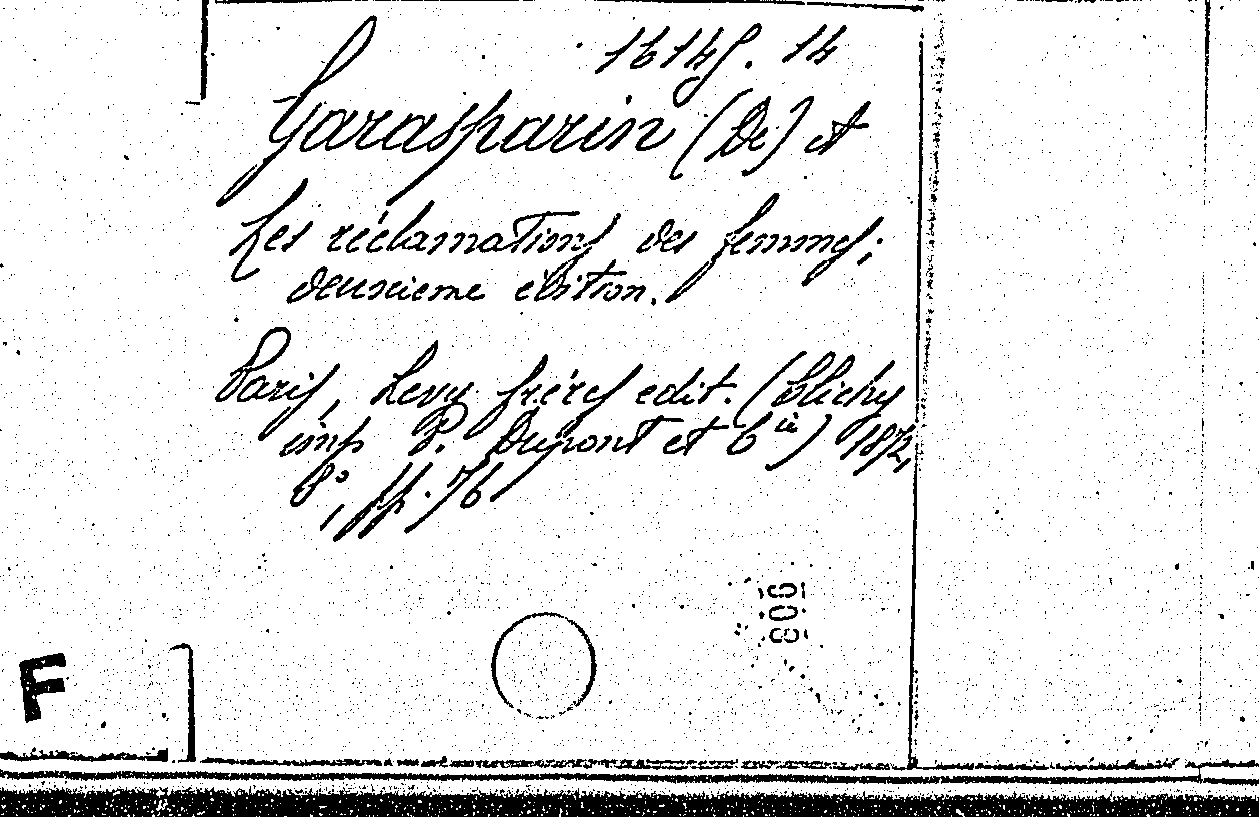 16145. 14
Garasparin (De) et
Les réclamations des femmes;
deuxieme edition.
Paris, Levy frères edit. (Clichy
imp P. Dupont et Cie) 1872,
8°, pp. 76
908
F